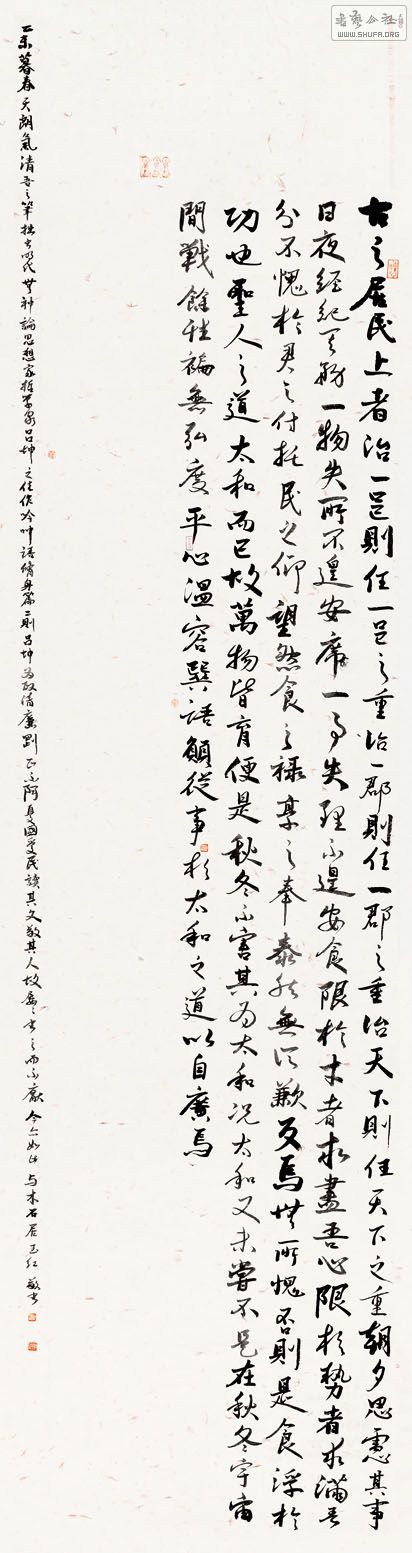 書藝公社
WWW.SHUFA.ORG
古之居民上者治一邑則任一邑之重治一郡則任一郡之重治天下則任天下之重朝夕思慮其事
日夜經紀其務一物失所不遑安席一事失理不遑安食限於才者求盡吾心限於勢者求滿吾
分不愧於君之付托民之仰望然食之祿享之奉泰然無所歉反焉無所愧否則是食浮於
功也聖人之道太和而已故萬物皆育便是秋冬不害其為太和況太和又未嘗不是在秋冬宇宙
間哉餘性褊無弘度平心溫容巽語願從事於太和之道以自廣焉
乙未暮春天朗氣清吾之筆拙書明代無神論思想家哲學家呂坤之佳作吟語脩身篇二則呂坤為政清廉剛正不阿國愛民讀其文敬其人故屢屢書之而不厭今亦如此与木石居玉红敬书